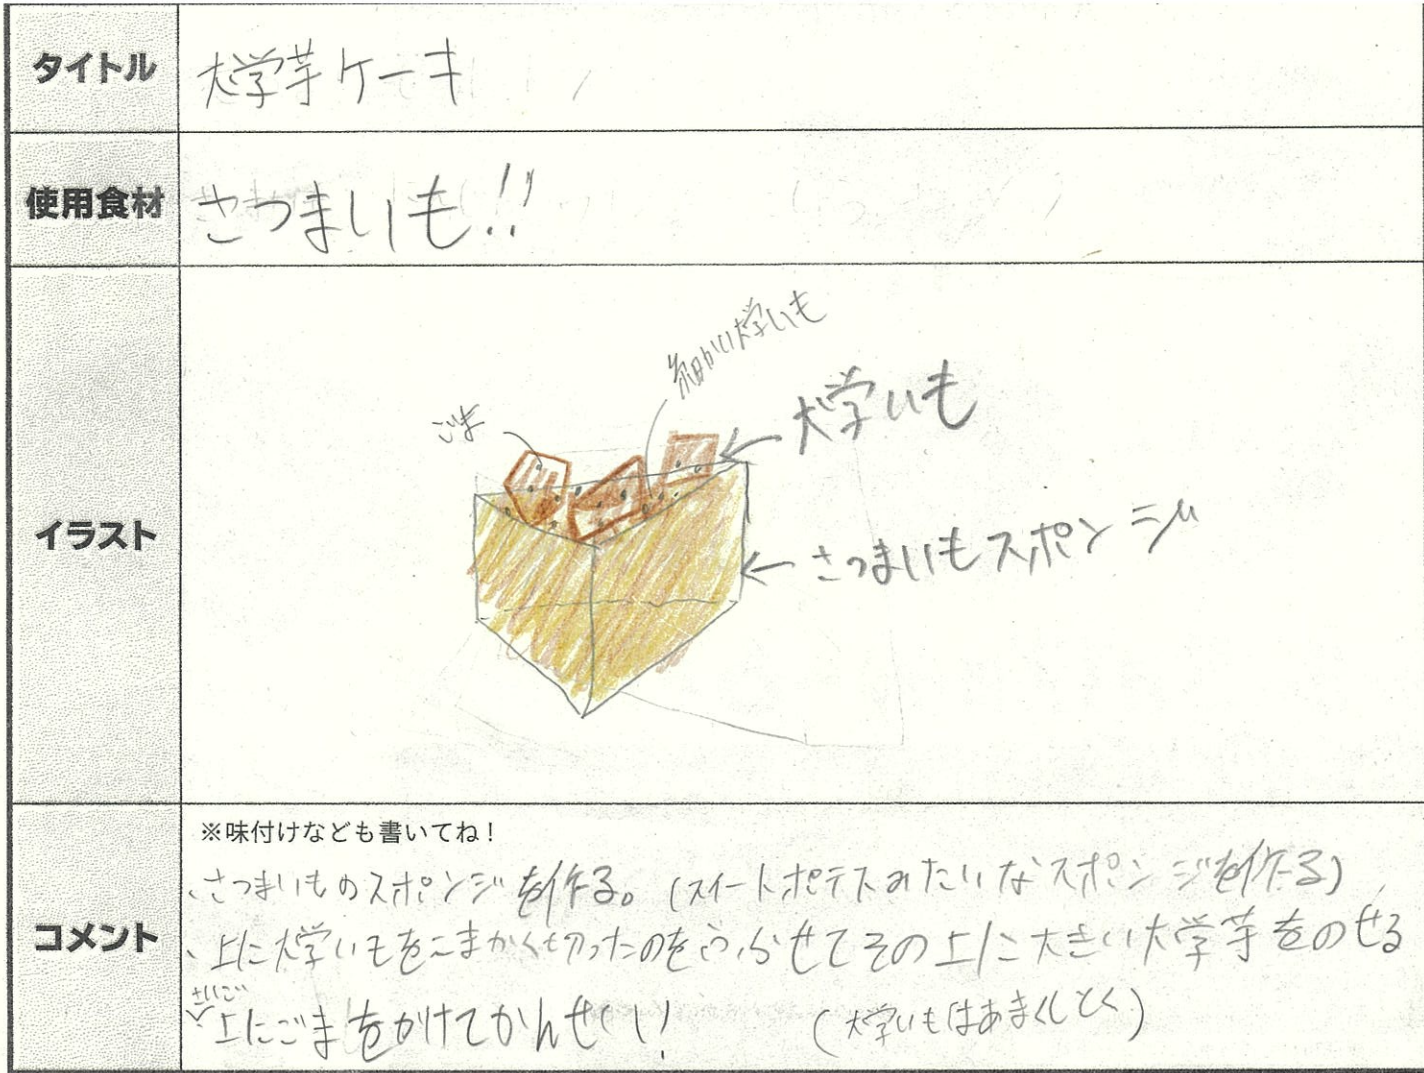 タイトル
大学芋ケーキ
使用食材
さつまいも!!
イラスト
細かい大学いも
ごま
大学いも
さつまいもスポンジ
コメント
※味付けなども書いてね！
、さつまいものスポンジを作る。(スイートポテトみたいなスポンジを作る)
、上に大学いもをこまかく切ったのをせてその上に大きい大学芋をのせる
さいご
上にごまをかけてかんせい!
(大学いもはあまくしとく)